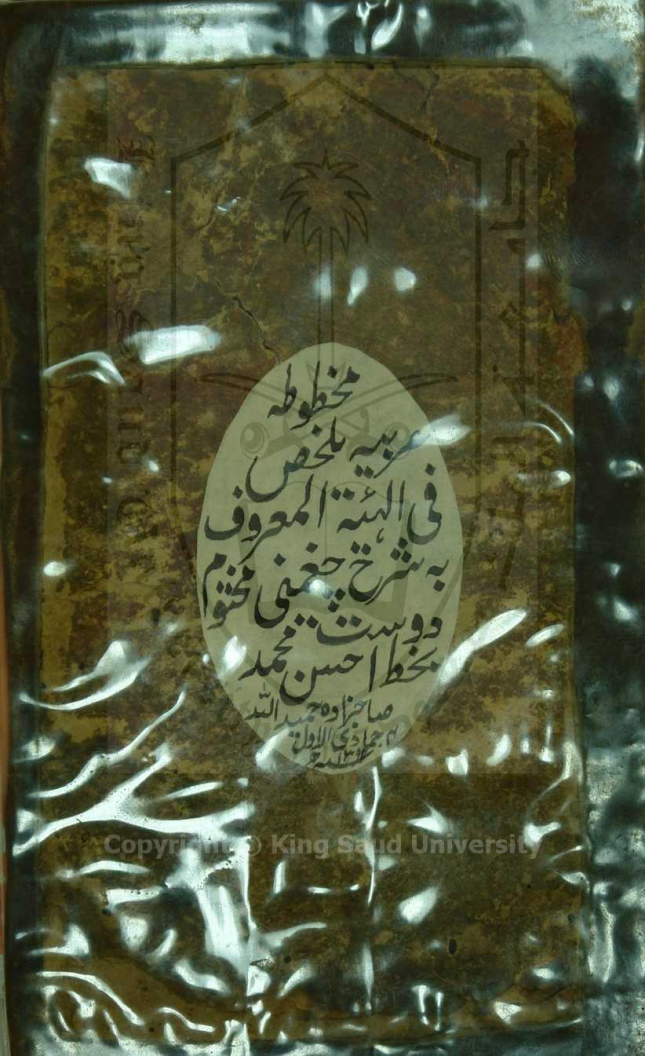 مخطوطہ
عربیہ ملخص
فی الہئۃ المعروف
بہ شرح چغمنی مختوم
دوست محمد
بخط احسن
صاحبزادہ حمید اللہ
جمادی الاول
Copyright © King Saud University